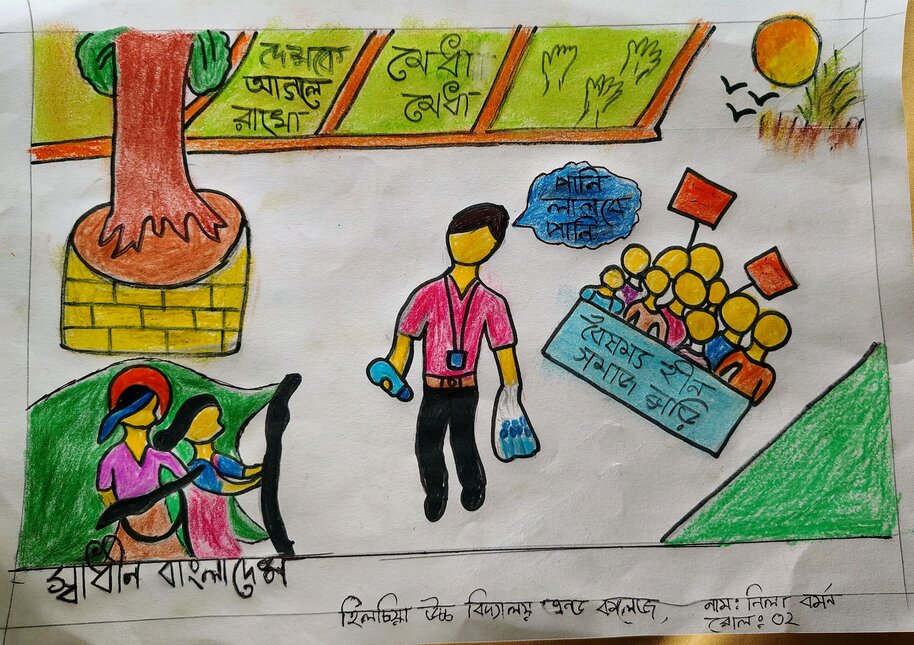 দেশকে
আগলে
রাখো
মেধা
মেধা
পানি
লাগবে
পানি
বৈষম্য হীন
সমাজ গড়ি
স্বাধীন বাংলাদেশ
হিলচিয়া উচ্চ বিদ্যালয় এন্ড কলেজ,
নাম: নিলা বর্মন
রোল: ০২